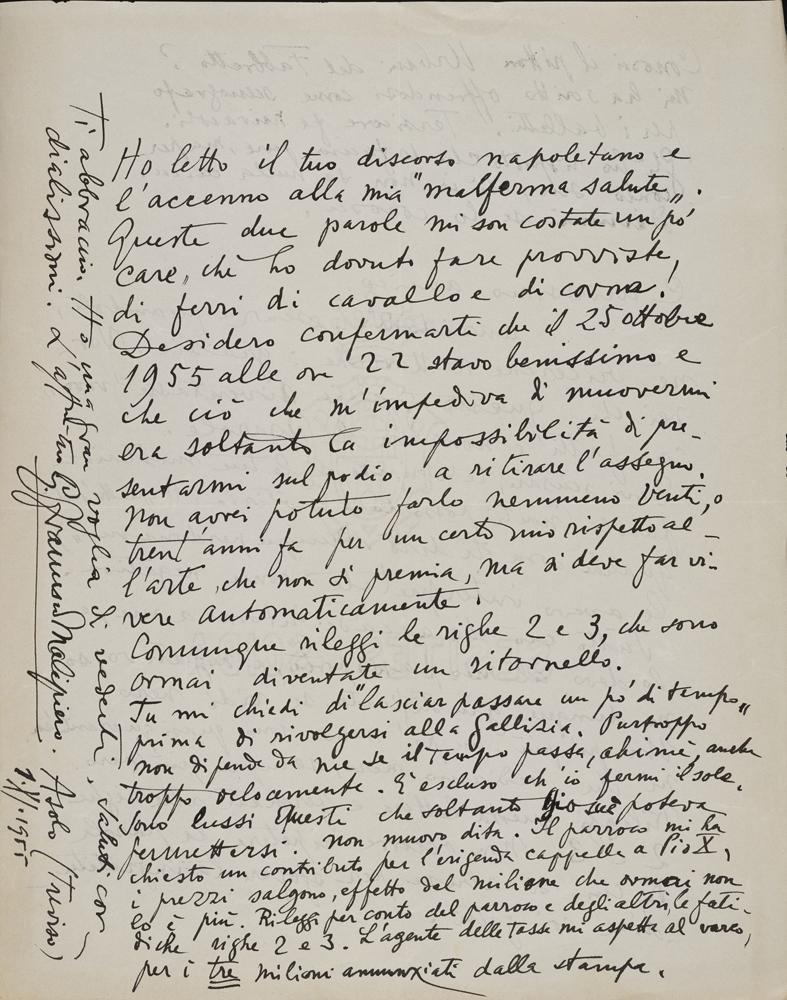 Ho letto il tuo discorso napoletano e
l'accenno alla mia "malferma salute".
Queste due parole mi son costate un pó
care, chè ho dovuto fare provviste,
di ferri di cavallo e di corna!
Desidero confermarti che il 25 ottobre
1955 alle ore 22 stavo benissimo e
che ciò che m'impediva di muovermi
era soltanto la impossibilità di pre-
sentarmi sul podio a ritirare l'assegno.
Non avrei potuto farlo nemmeno venti, o
trent'anni fa per un certo mio rispetto al-
l'arte, che non si premia, ma si deve far vi-
vere automaticamente.
Comunque rileggi le righe 2 e 3, che sono
ormai diventate un ritornello.
Tu mi chiedi di "lasciar passare un pó di tempo"
prima di rivolgersi alla Gallizia. Purtroppo
non dipende da me se il tempo passa, ahimè, anche
troppo velocemente. È escluso ch'io fermi il sole.
Sono lussi questi che soltanto Giosuè poteva
permettersi. Non muovo dita. Il parroco mi ha
chiesto un contributo per l'erigenda cappella a Pio X,
i prezzi salgono, effetto del milione che ormai non
lo è più. Rileggi per conto del parroco e degli altri, le fati-
diche righe 2 e 3. L'agente delle Tasse mi aspetta al varco,
per i tre milioni annunziati dalla stampa.
Ti abbraccio. Ho una gran voglia di vederti, saluti cor-
dialissimi. L'aff.mo tuo G. Francesco Malipiero. Asolo (Treviso)